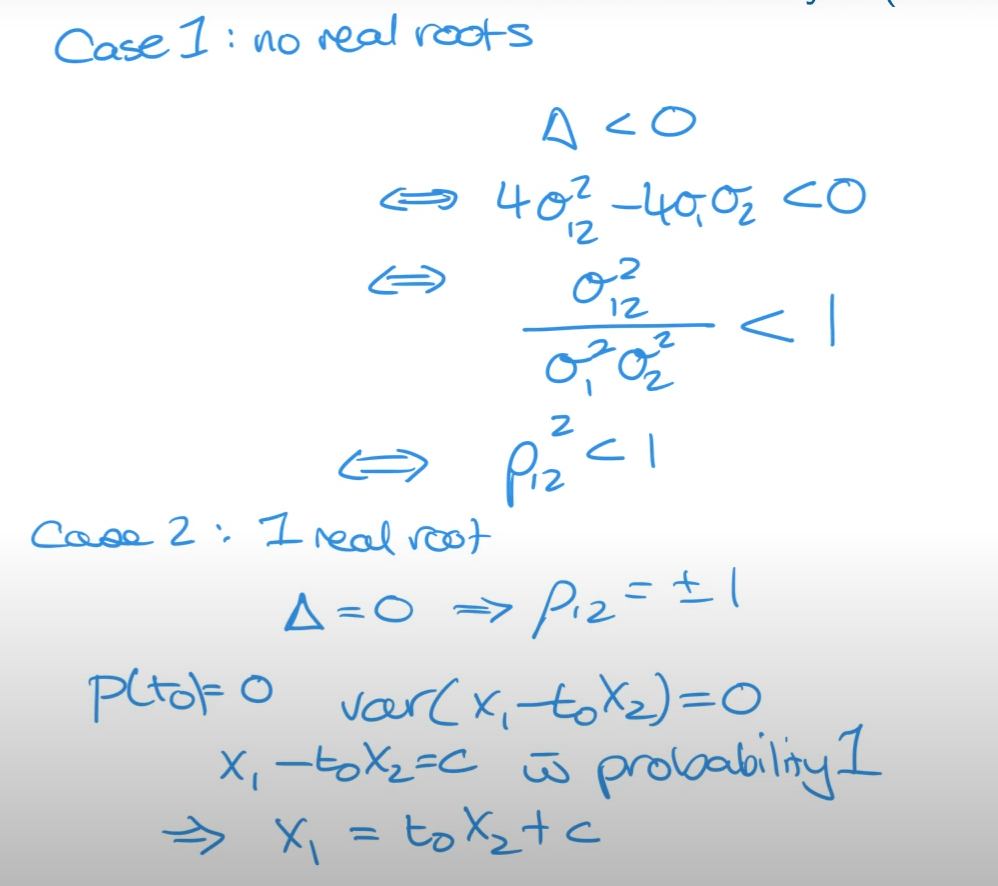 Case 1 : no real roots
Δ < 0
⟺ 4σ₁₂² - 4σ₁σ₂ < 0
⟺ σ₁₂² / σ₁²σ₂² < 1
⟺ ρ₁₂² < 1
Case 2 : 1 real root
Δ = 0 ⟹ ρ₁₂ = ± 1
P(t₀) = 0 var(X₁ - t₀X₂) = 0
X₁ - t₀X₂ = c w̄ probability 1
⟹ X₁ = t₀X₂ + c